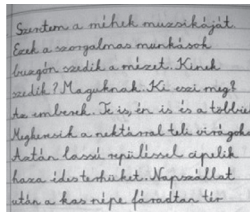 Szeretem a méhek muzsikáját.
Ezek a szorgalmas munkások
buzgón szedik a mézet. Kinek
szedik? Maguknak. Ki eszi meg?
Az emberek. Te is, én is és a többi
Megkeresik a nektárral teli virágoka
Aztán lassú repüléssel cipelik
haza édes terhüket. Napszállat
után a kas népe fáradtan tér